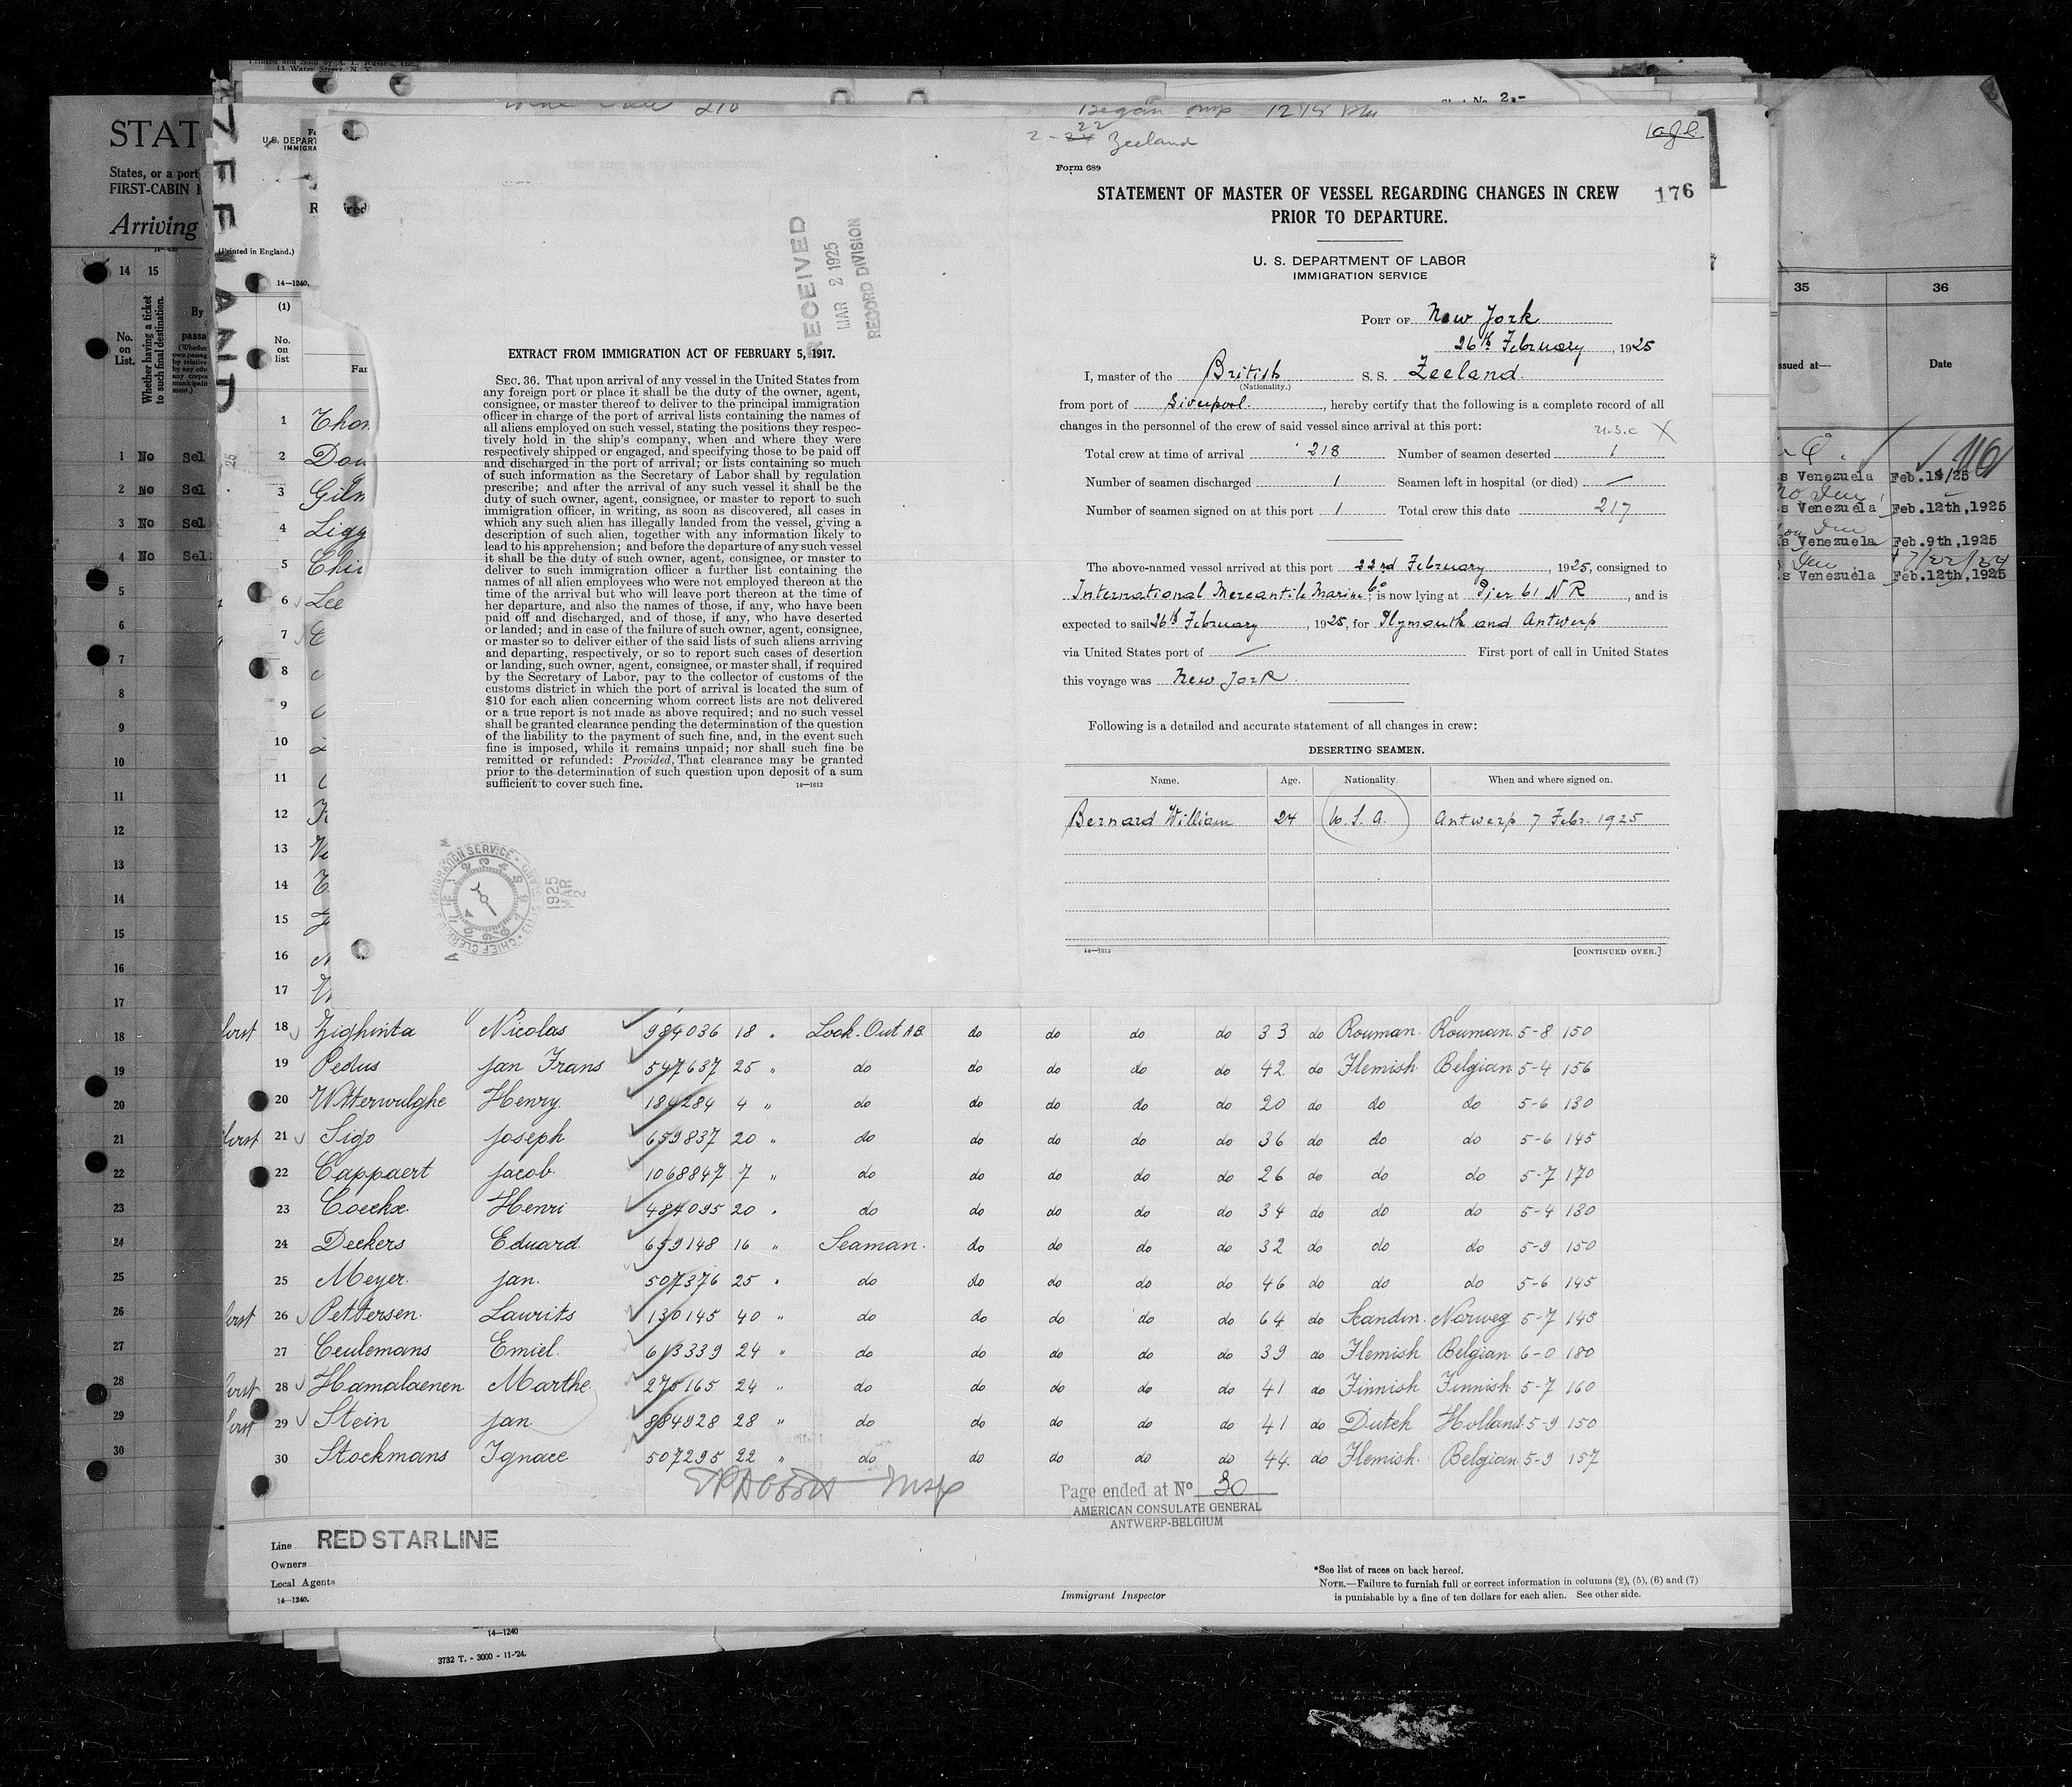 Printed and Sold by A. L. Russell, Inc.,
2-22 Zeeland
Form 689
176
STATEMENT OF MASTER OF VESSEL REGARDING CHANGES IN CREW
PRIOR TO DEPARTURE.
U. S. DEPARTMENT OF LABOR
IMMIGRATION SERVICE
PORT OF New York
26th February, 1925
I, master of the British S. S. Zeeland.
(Nationality.)
from port of Liverpool., hereby certify that the following is a complete record of all
changes in the personnel of the crew of said vessel since arrival at this port:
U.S.C X
Total crew at time of arrival 218 Number of seamen deserted 1
Number of seamen discharged 1 Seamen left in hospital (or died) —
Number of seamen signed on at this port 1 Total crew this date 217
The above-named vessel arrived at this port 22nd February, 1925, consigned to
International Mercantile Marine Co; is now lying at Pier 61 N R, and is
expected to sail 26th February, 1925, for Plymouth and Antwerp
via United States port of — First port of call in United States
this voyage was New York.
Following is a detailed and accurate statement of all changes in crew:
DESERTING SEAMEN.
Name. Age. Nationality When and where signed on.
Bernard William 24 U.S.A. Antwerp 7 Febr. 1925
14—1613 [CONTINUED OVER.]
RECEIVED
MAR 2 1925
RECORD DIVISION
EXTRACT FROM IMMIGRATION ACT OF FEBRUARY 5, 1917.
SEC. 36. That upon arrival of any vessel in the United States from
any foreign port or place it shall be the duty of the owner, agent,
consignee, or master thereof to deliver to the principal immigration
officer in charge of the port of arrival lists containing the names of
all aliens employed on such vessel, stating the positions they respec-
tively hold in the ship's company, when and where they were
respectively shipped or engaged, and specifying those to be paid off
and discharged in the port of arrival; or lists containing so much
of such information as the Secretary of Labor shall by regulation
prescribe; and after the arrival of any such vessel it shall be the
duty of such owner, agent, consignee, or master to report to such
immigration officer, in writing, as soon as discovered, all cases in
which any such alien has illegally landed from the vessel, giving a
description of such alien, together with any information likely to
lead to his apprehension; and before the departure of any such vessel
it shall be the duty of such owner, agent, consignee, or master to
deliver to such immigration officer a further list containing the
names of all alien employees who were not employed thereon at the
time of the arrival but who will leave port thereon at the time of
her departure, and also the names of those, if any, who have been
paid off and discharged, and of those, if any, who have deserted
or landed; and in case of the failure of such owner, agent, consignee,
or master so to deliver either of the said lists of such aliens arriving
and departing, respectively, or so to report such cases of desertion
or landing, such owner, agent, consignee, or master shall, if required
by the Secretary of Labor, pay to the collector of customs of the
customs district in which the port of arrival is located the sum of
$10 for each alien concerning whom correct lists are not delivered
or a true report is not made as above required; and no such vessel
shall be granted clearance pending the determination of the question
of the liability to the payment of such fine, and, in the event such
fine is imposed, while it remains unpaid; nor shall such fine be
remitted or refunded: Provided, That clearance may be granted
prior to the determination of such question upon deposit of a sum
sufficient to cover such fine. 14—1613
IMMIGRATION SERVICE
CHIEF CLERK
ELLIS ISLAND
1925
MAR
2
STAT
States, or a port
FIRST-CABIN
Arriving
14 15
No. on List.
Whether having a ticket to such final destination.
1 No Sel
2 No Sel
3 No Sel
4 No Sel
ZEELAND
U.S. DEPART
IMMIGRA
(Printed in England.)
14—1240.
(1)
No. on list
35 36
ssued at— Date
s Venezuela Feb.14/25
s Venezuela Feb.12th,1925
s Venezuela Feb.9th,1925
s Venezuela Feb.12th,1925
18 Zighinta Nicolas 984036 18 " Look-Out AB. do do do do 33 do Rouman. Rouman. 5-8 150
19 Pedus Jan Frans 547637 25 " do do do do do 42 do Flemish Belgian 5-4 156
20 Witterwulghe Henry 184284 4 " do do do do do 20 do do do 5-6 130
21 Sigo Joseph 659837 20 " do do do do do 36 do do do 5-6 145
22 Cappaert Jacob 1068847 7 " do do do do do 26 do do do 5-7 170
23 Coeckx Henri 484095 20 " do do do do do 34 do do do 5-4 130
24 Deckers Eduard 659148 16 " Seaman. do do do do 32 do do do 5-9 150
25 Meyer. Jan. 507376 25 " do do do do do 46 do do do 5-6 145
26 Pettersen. Laurits 130145 40 " do do do do do 64 do Scandin. Norweg 5-7 145
27 Ceulemans Emiel. 613339 24 " do do do do do 39 do Flemish Belgian 6-0 180
28 Hamalaenen Marthe 275165 24 " do do do do do 41 do Finnish Finnish 5-7 160
29 Stein Jan. 884928 28 " do do do do do 41 do Dutch Holland. 5-9 150
30 Stockmans Ignace 507295 22 " do do do do do 44. do Flemish Belgian 5-9 157
Page ended at No 30
AMERICAN CONSULATE GENERAL
ANTWERP-BELGIUM
Line RED STAR LINE
Owners
Local Agents
14—1240.
Immigrant Inspector
*See list of races on back hereof.
NOTE.—Failure to furnish full or correct information in columns (2), (5), (6) and (7)
is punishable by a fine of ten dollars for each alien. See other side.
14—1240
3732 T. - 3000 - 11-'24.